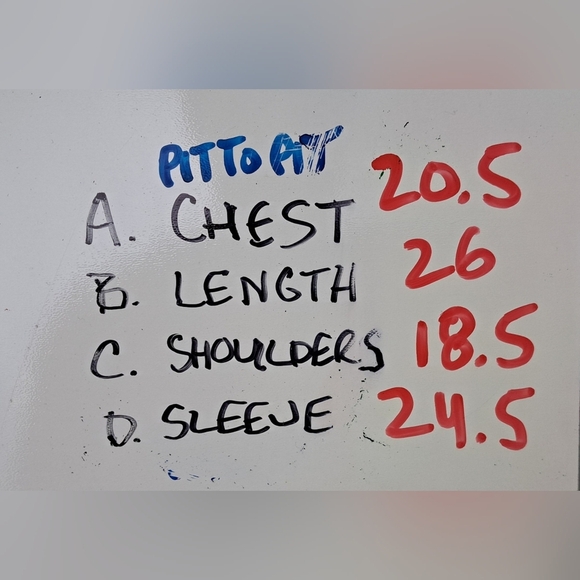 PIT TO PIT
A. CHEST 20.5
B. LENGTH 26
C. SHOULDERS 18.5
D. SLEEVE 24.5